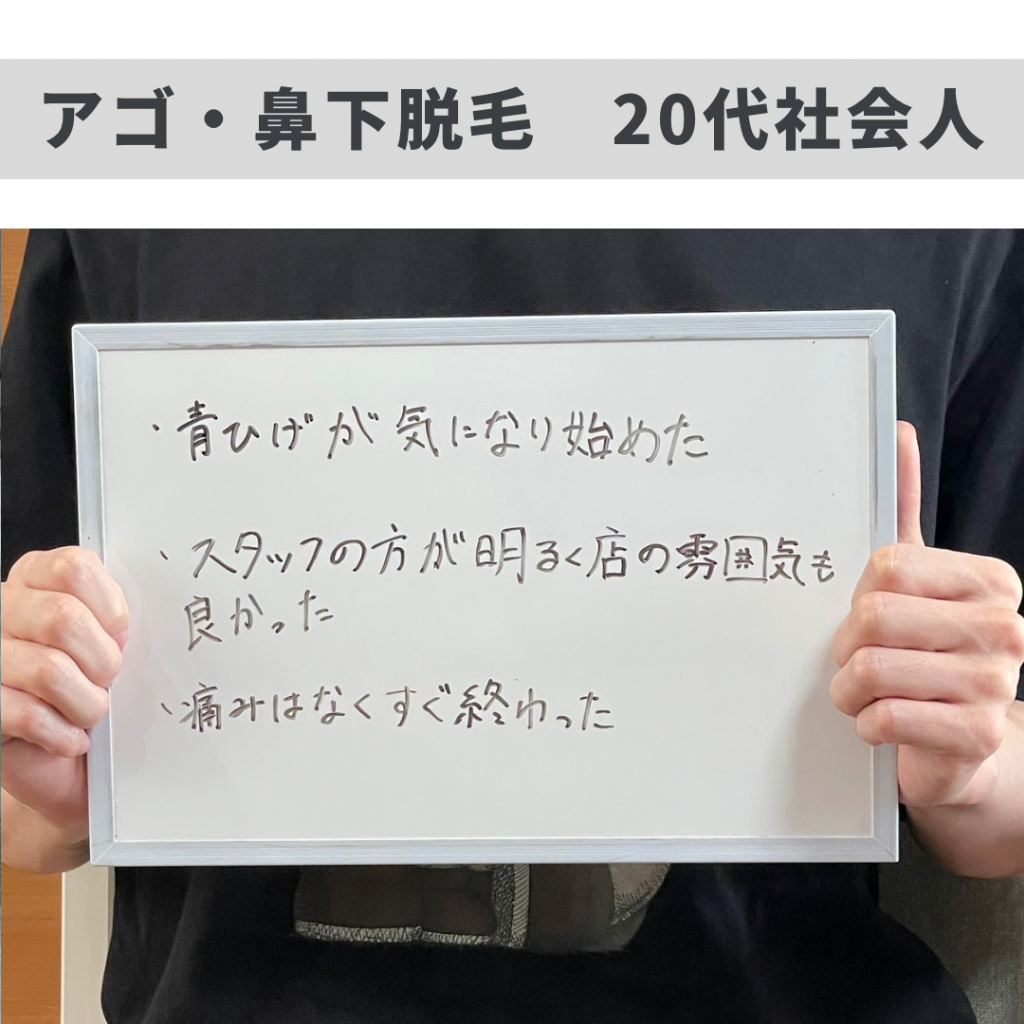 アゴ・鼻下脱毛　20代社会人
・青ひげが気になり始めた
・スタッフの方が明るく店の雰囲気も
良かった
・痛みはなくすぐ終わった